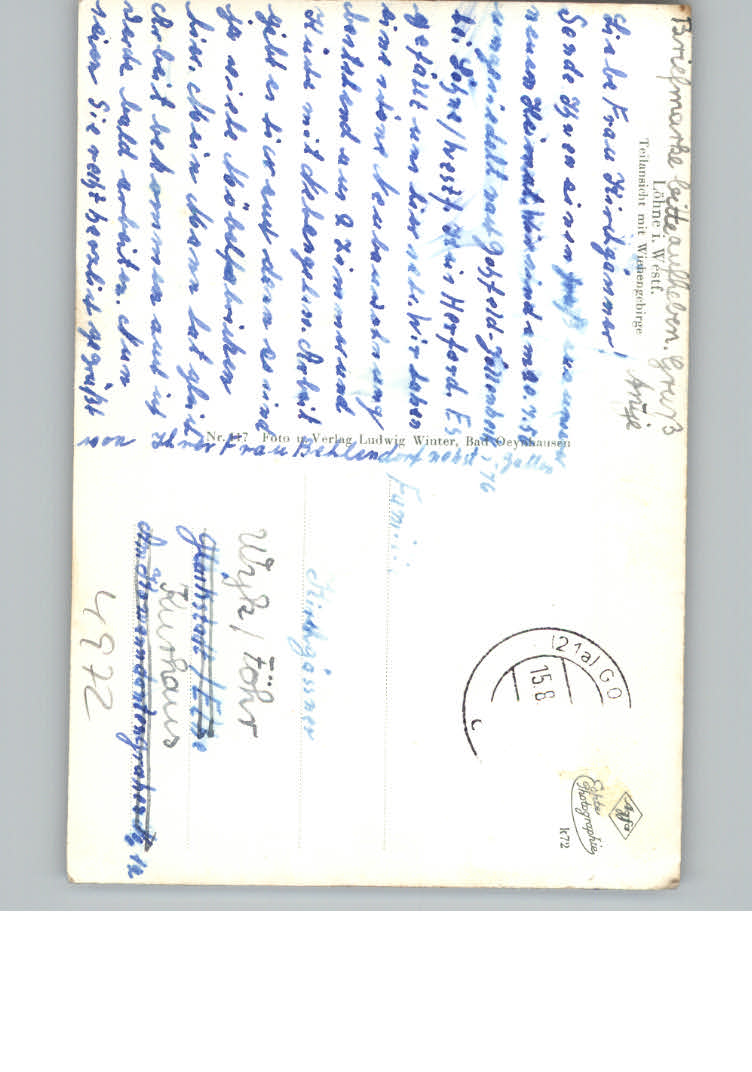 Briefmarke bitte aufheben. Gruß
Antje
Löhne i. Westf.
Teilansicht mit Wiehengebirge
Liebe Frau Kirchgässner!
Sende Ihnen einen Gruß aus unserer
neuen Heimat. Wir sind am 20.7.5
umgesiedelt nach Gohfeld-
bei Löhne/Westf. Kreis Herford. Es
gefällt uns hier gut. Wir haben
eine neue Neubauwohnung
bestehend aus 2 Zimmer und
Küche mit Nebengelass. Arbeit
gibt es hier auch denn es sind
ja viele Möbelfabriken
hier. Mein Mann hat gleich
Arbeit bekommen auch ich
werde bald arbeiten. Nun
seien Sie recht herzlich gegrüßt
von Ihrer Frau Behlendorf nebst
Nr. 117 Foto u. Verlag Ludwig Winter, Bad Oeynhausen
(21a) GO
15.8.
Agfa
Echte Photographie
k72
Kirchgässner
Wyk/Föhr
Glückstadt/Elbe
Kurhaus
4972